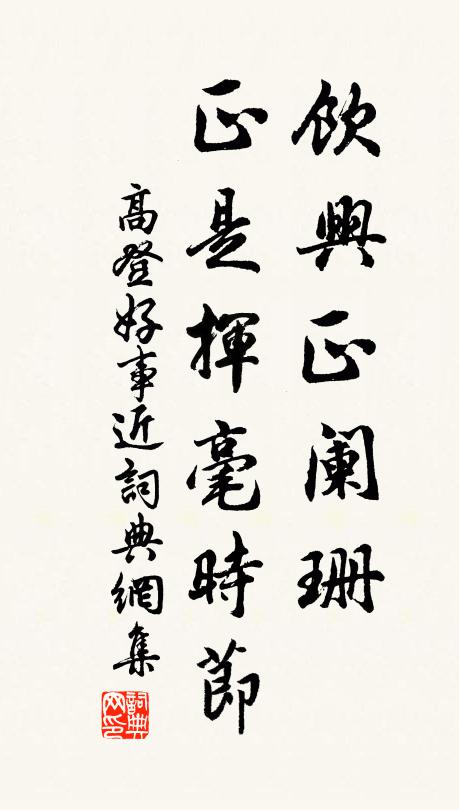 飲興正闌珊
正是揮毫時節
高登好事近詞典網集
詞典网印